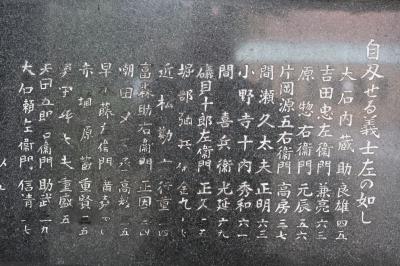 自刃せる義士左の如し
大石内蔵助良雄四五
吉田忠左衛門兼亮六三
原惣右衛門元辰五六
片岡源五右衛門高房三七
間瀬久太夫正明六三
小野寺十内秀和六一
間喜兵衛光延六九
礒貝十郎左衛門正久二五
堀部弥兵衛金丸七七
近松勘六行重三四
富森助右衛門正因三四
潮田又之丞高教三五
早水藤左衛門
赤埴源蔵重賢三五
奥田孫太夫重盛五
矢田五郎右衛門助武二九
大石瀬左衛門信清二七